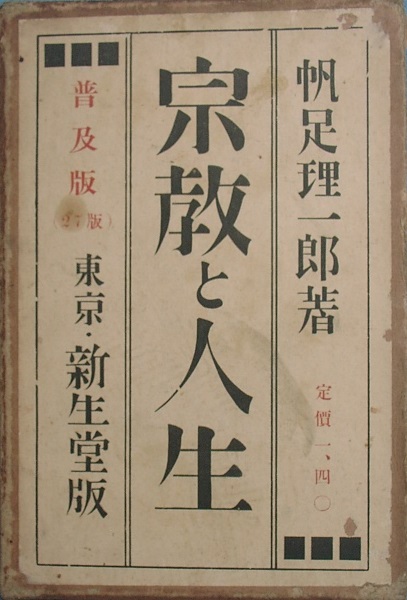 帆足理一郎著
定價一、四〇
宗教と人生
普及版
(27版)
東京・新生堂版